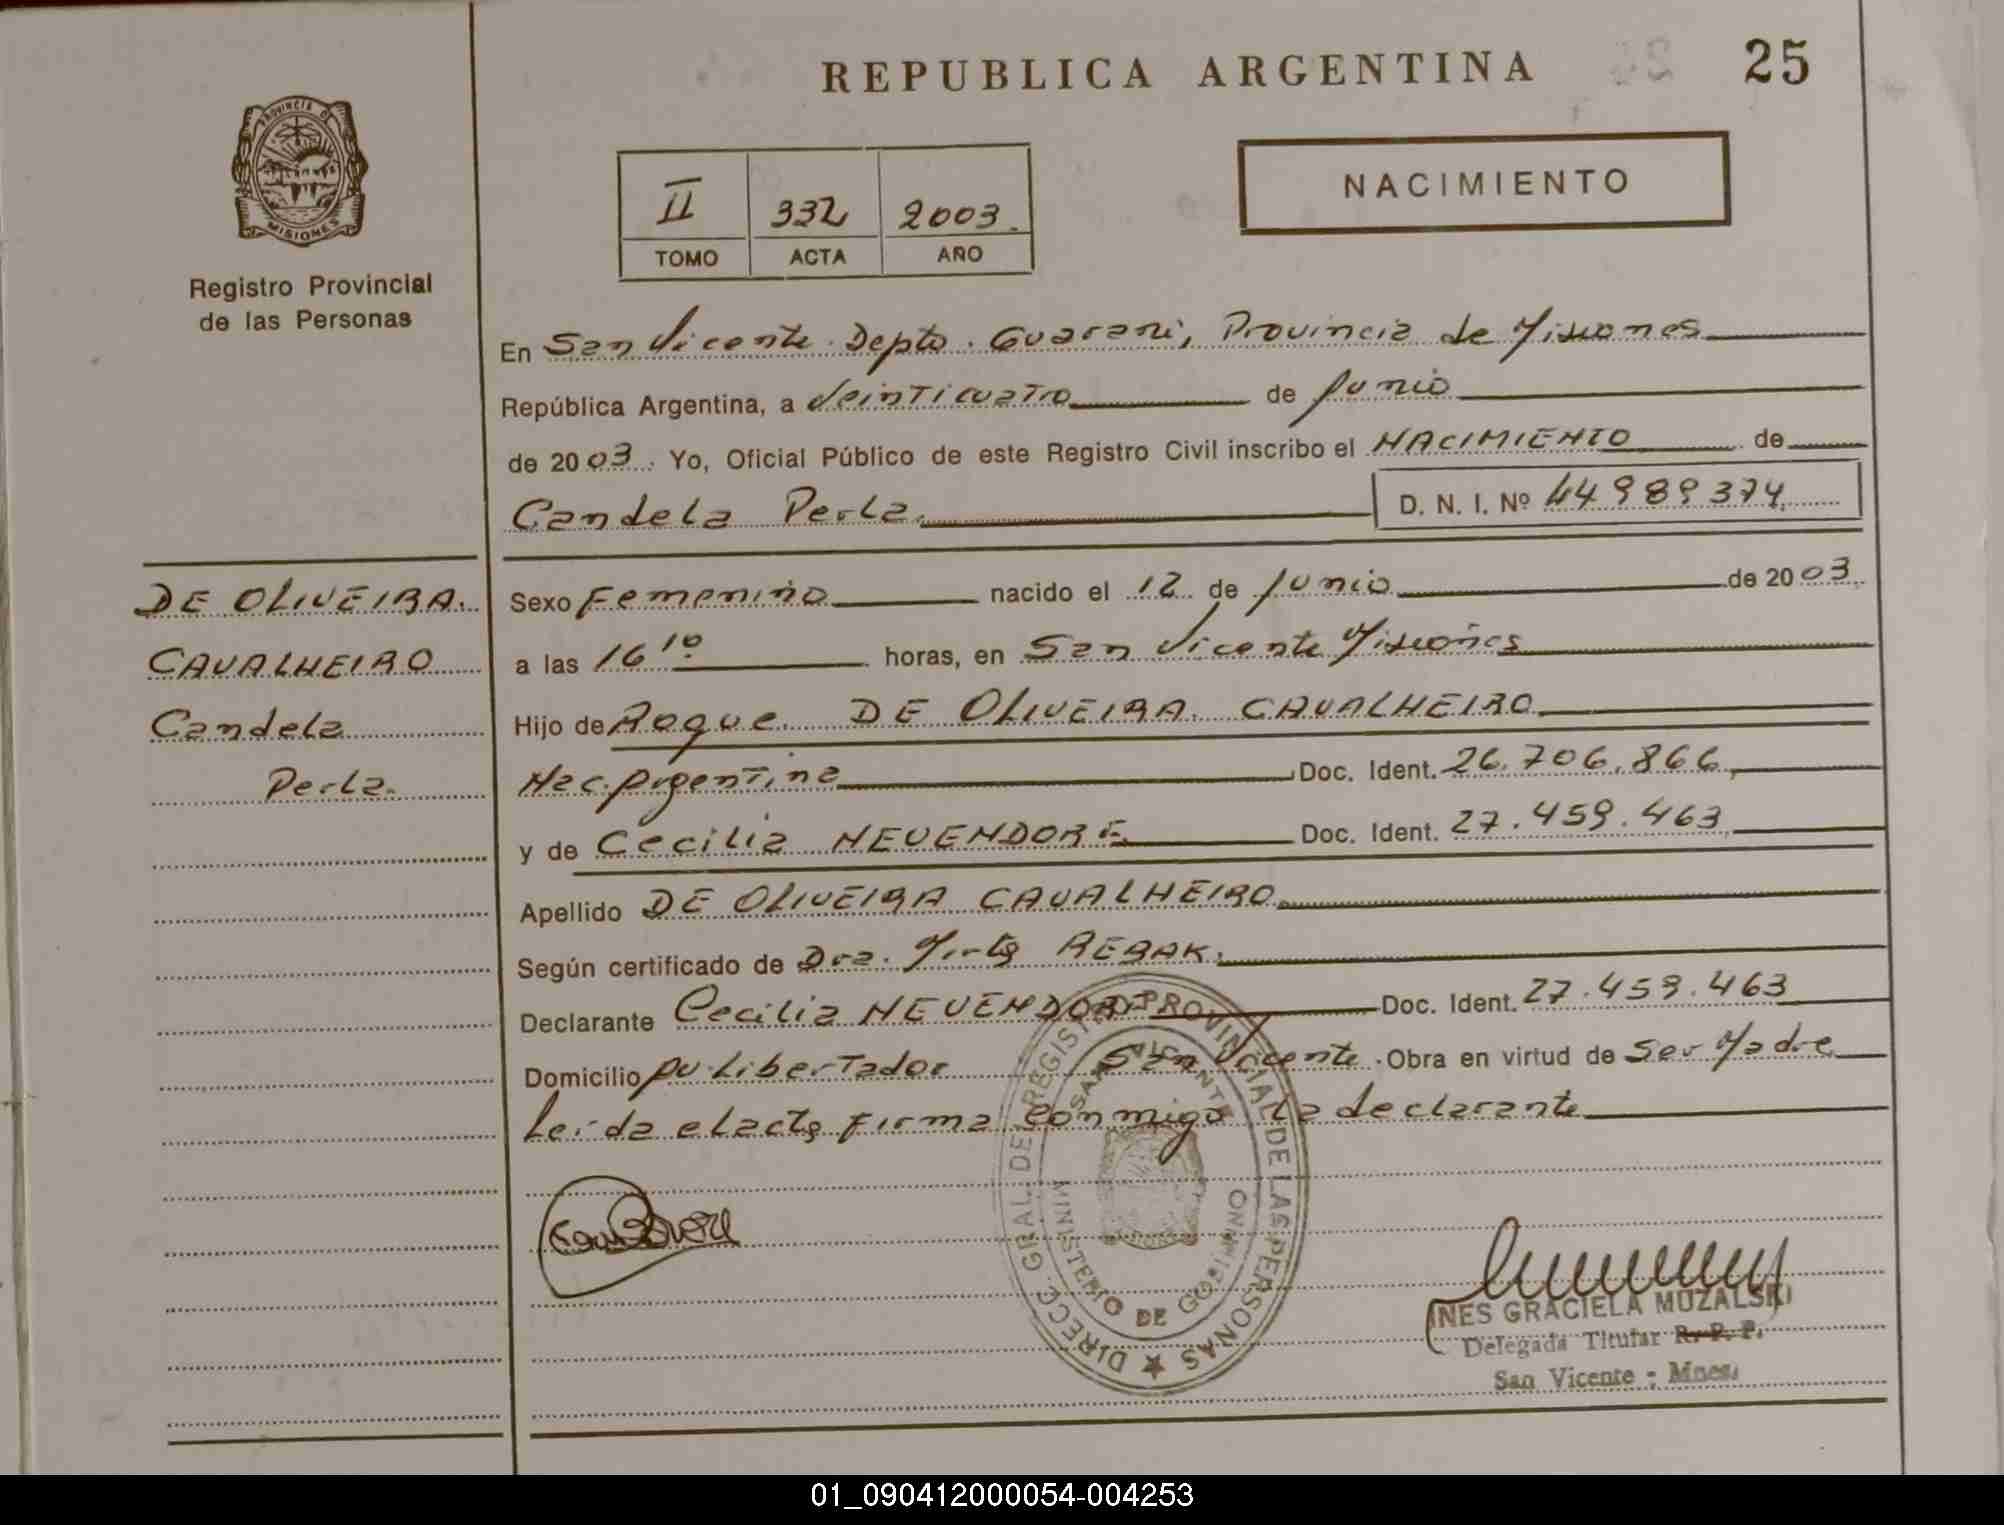 REPUBLICA ARGENTINA
25
PROVINCIA DE
MISIONES
Registro Provincial
de las Personas
II 332 2003
TOMO ACTA AÑO
NACIMIENTO
En San Vicente Depto. Guarani, Provincia de Misiones
República Argentina, a Veinticuatro de Junio
de 2003. Yo, Oficial Público de este Registro Civil inscribo el NACIMIENTO de
Candela Perla. D. N. I. Nº 44989374
DE OLIVEIRA
CAVALHEIRO
Candela
Perla.
Sexo Femenino nacido el 12 de Junio de 2003
a las 16 10 horas, en San Vicente Misiones
Hijo de Roque DE OLIVEIRA CAVALHEIRO
Nac. Argentina Doc. Ident. 26.706.866
y de Cecilia NEUENDORF Doc. Ident. 27.459.463
Apellido DE OLIVEIRA CAVALHEIRO
Según certificado de Dra. Mirta REBAK.
Declarante Cecilia NEUENDORF Doc. Ident. 27.459.463
Domicilio Av. Libertador San Vicente. Obra en virtud de Ser Madre
Leida el acta firma conmigo la declarante
DIRECC. GRAL. DEL REGISTRO PROVINCIAL DE LAS PERSONAS
SAN VICENTE
MINISTERIO DE GOBIERNO
INES GRACIELA MUZALSKI
Delegada Titular R. P. P.
San Vicente - Mnes.
01_090412000054-004253